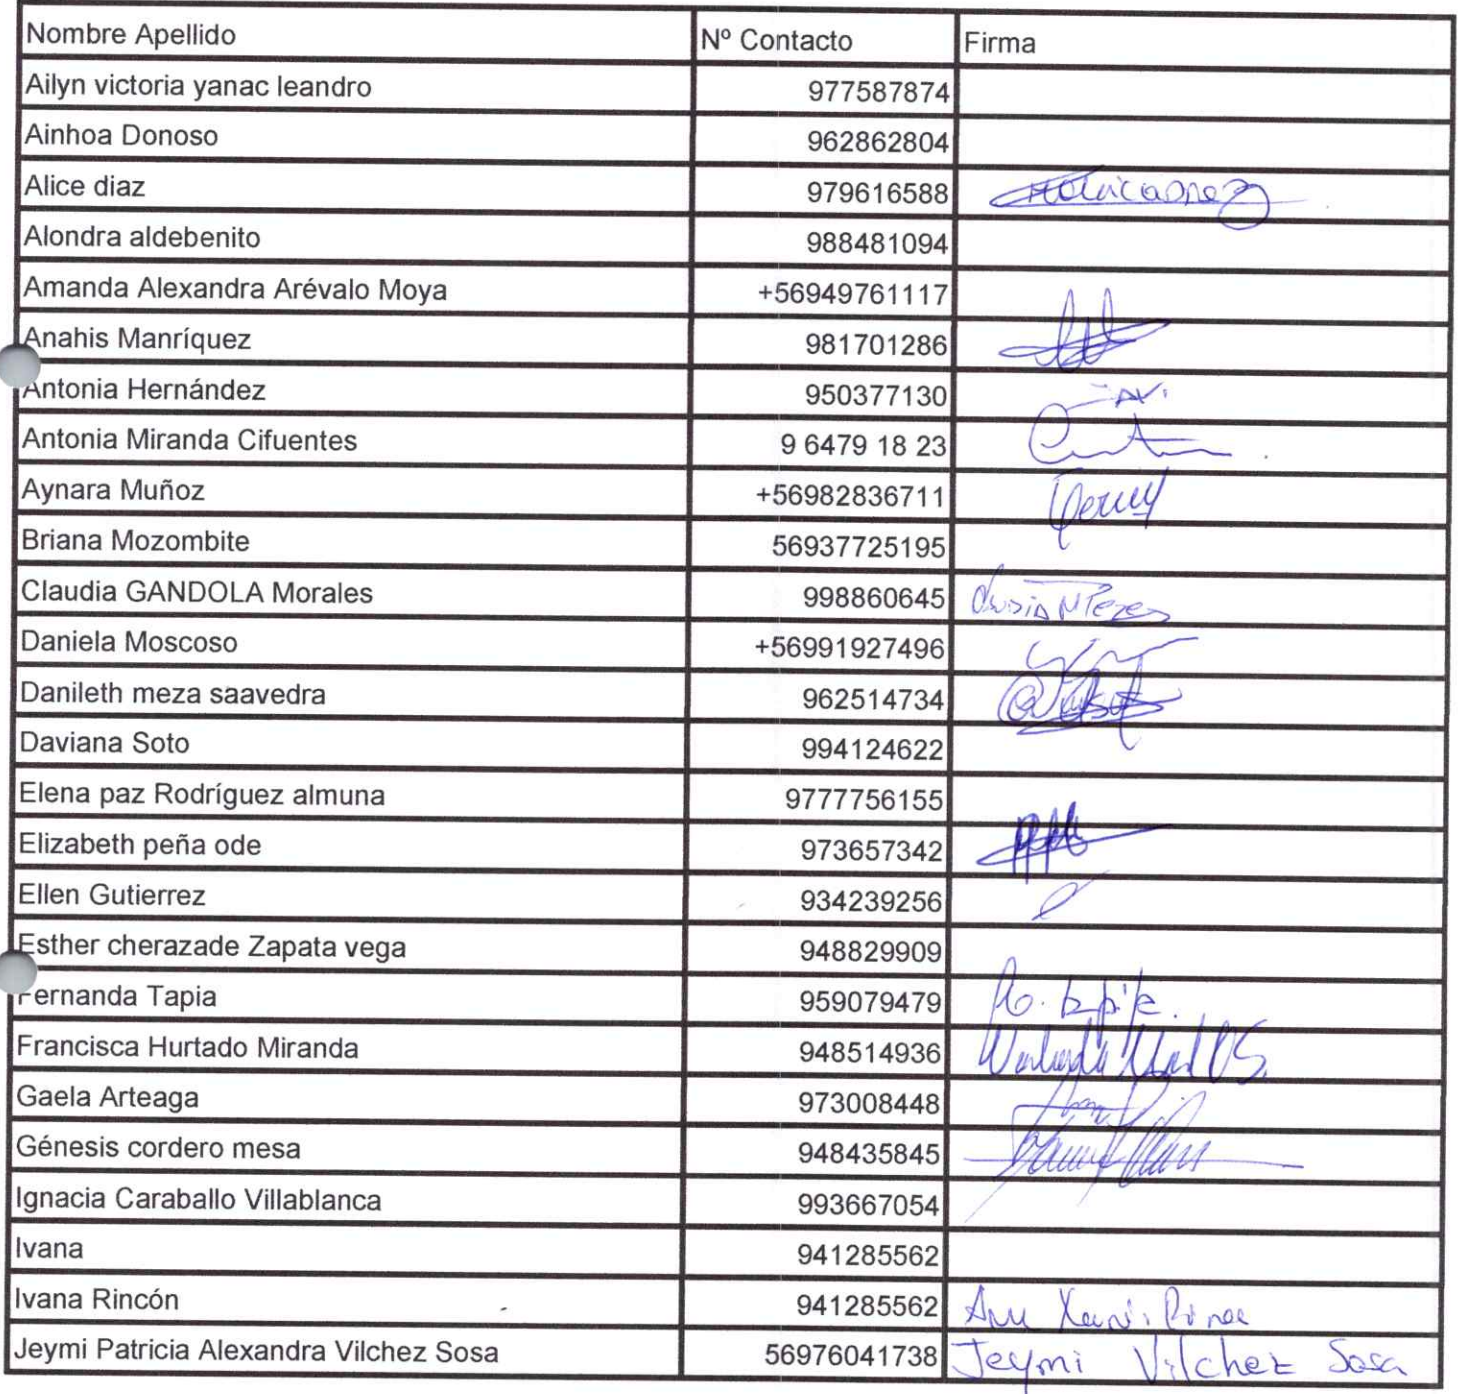 Nombre Apellido Nº Contacto Firma
Ailyn victoria yanac leandro 977587874
Ainhoa Donoso 962862804
Alice diaz 979616588
Alondra aldebenito 988481094
Amanda Alexandra Arévalo Moya +56949761117
Anahis Manríquez 981701286
Antonia Hernández 950377130
Antonia Miranda Cifuentes 9 6479 18 23
Aynara Muñoz +56982836711
Briana Mozombite 56937725195
Claudia GANDOLA Morales 998860645
Daniela Moscoso +56991927496
Danileth meza saavedra 962514734
Daviana Soto 994124622
Elena paz Rodríguez almuna 9777756155
Elizabeth peña ode 973657342
Ellen Gutierrez 934239256
Esther cherazade Zapata vega 948829909
Fernanda Tapia 959079479
Francisca Hurtado Miranda 948514936
Gaela Arteaga 973008448
Génesis cordero mesa 948435845
Ignacia Caraballo Villablanca 993667054
Ivana 941285562
Ivana Rincón 941285562
Jeymi Patricia Alexandra Vilchez Sosa 56976041738 Jeymi Vilchez Sosa